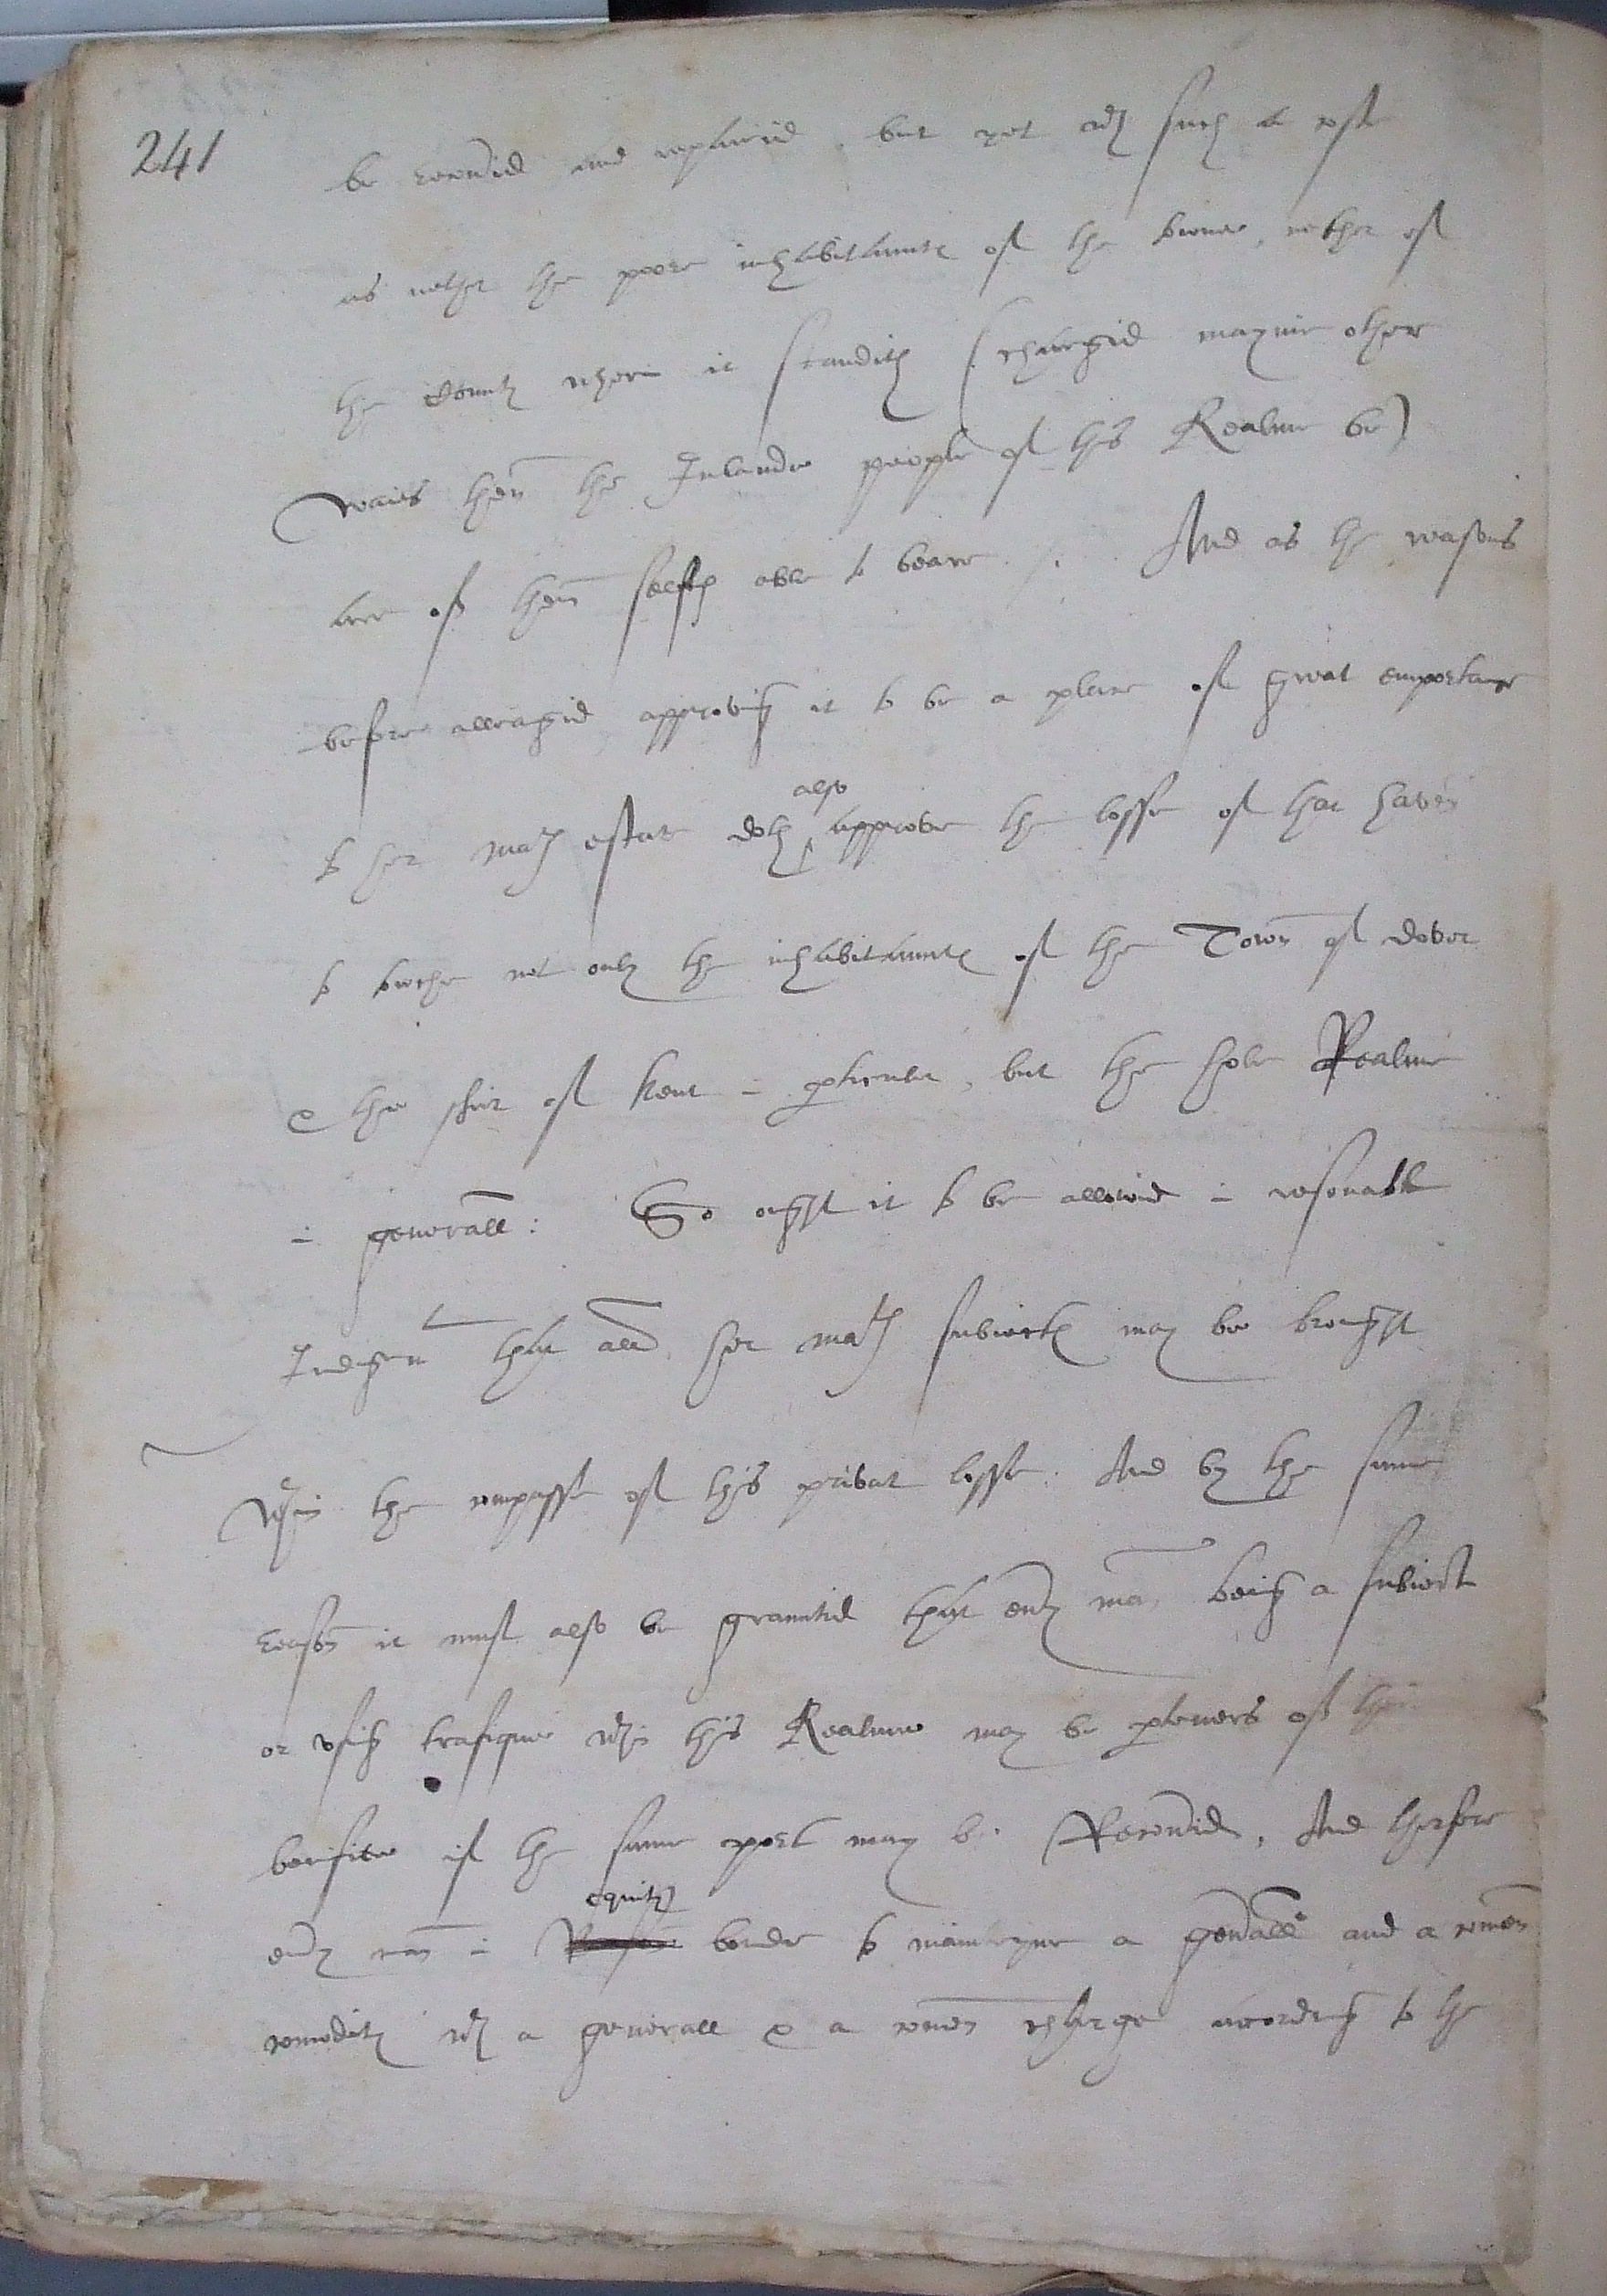 241
be recoverid and repairid, but not wth such a cost
as nether the poore inhabitaunts of the towne, nether of
the County wherin it standith (chargid maynie other
waies then the Inlande people of this Realme be)
are of them selfs able to beare /. And as the reasons
before alleagid approving it to be a place of great emportance
to her Maties estate doth also approve the losse of that haven
to towche not only the inhabitaunts of the Town of dover
& the shire of Kent in perticuler, but the hole Realme
in generall: So ought it to be allowid in resonable
Iudgemt that all her maties subiects may bee brought
wthin the compasse of this privat losse. And by the same
reason it must also be grauntid that every man being a subiect
or using trafique wthin this Realme may be perteners of the
benifite if the same port may be Recoverid, And therfore
every man in equity bounde to mainteyne a generall and a comen
comoditie wth a generall & a comen charge according to the